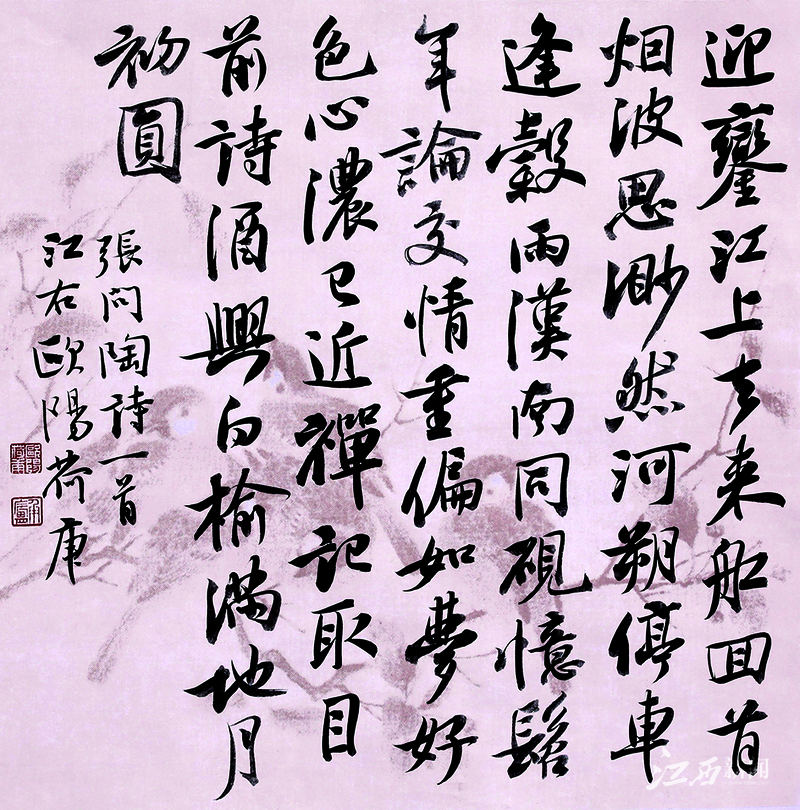 迎鑾江上去来船回首
烟波思渺然河朔停車
逢穀雨漢南同硯憶髫
年論交情重偏如夢好
色心濃已近禪記取目
前詩酒興白榆滿地月
初圓
張問陶詩一首
江右歐陽荷庚
江西新闻